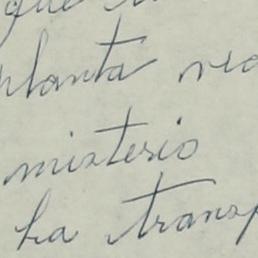 que
planta
misterio
ha transp